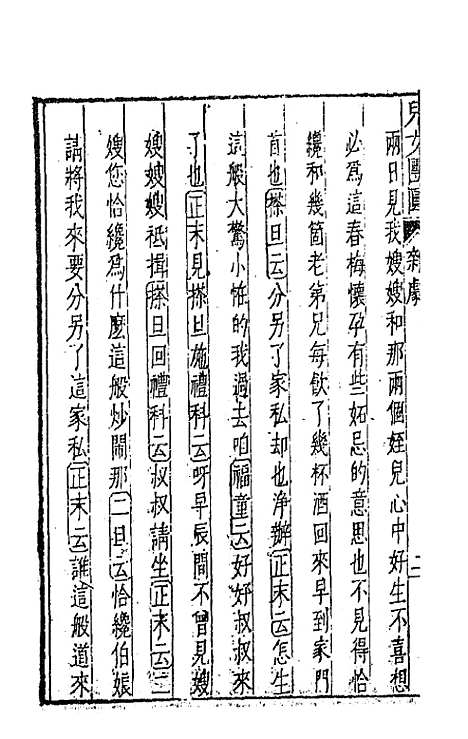 兒女團圓 雜劇 二
兩日見我嫂嫂和那兩個姪兒心中好生不喜想
必爲這春梅懷孕有些妬忌的意思也不見得恰
纔和幾箇老弟兄每飲了幾杯酒回來早到家門
首也搽旦云分另了家私却也淨辦正末云怎生
這般大驚小怪的我過去咱福童云好好叔叔來
了也正末見搽旦施禮科云呀早辰間不曾見嫂
嫂嫂嫂祗揖搽旦回禮科云叔叔請坐正末云二
嫂您恰纔爲什麼這般炒鬧那二旦云恰纔伯娘
請將我來要分另了這家私正末云誰這般道來